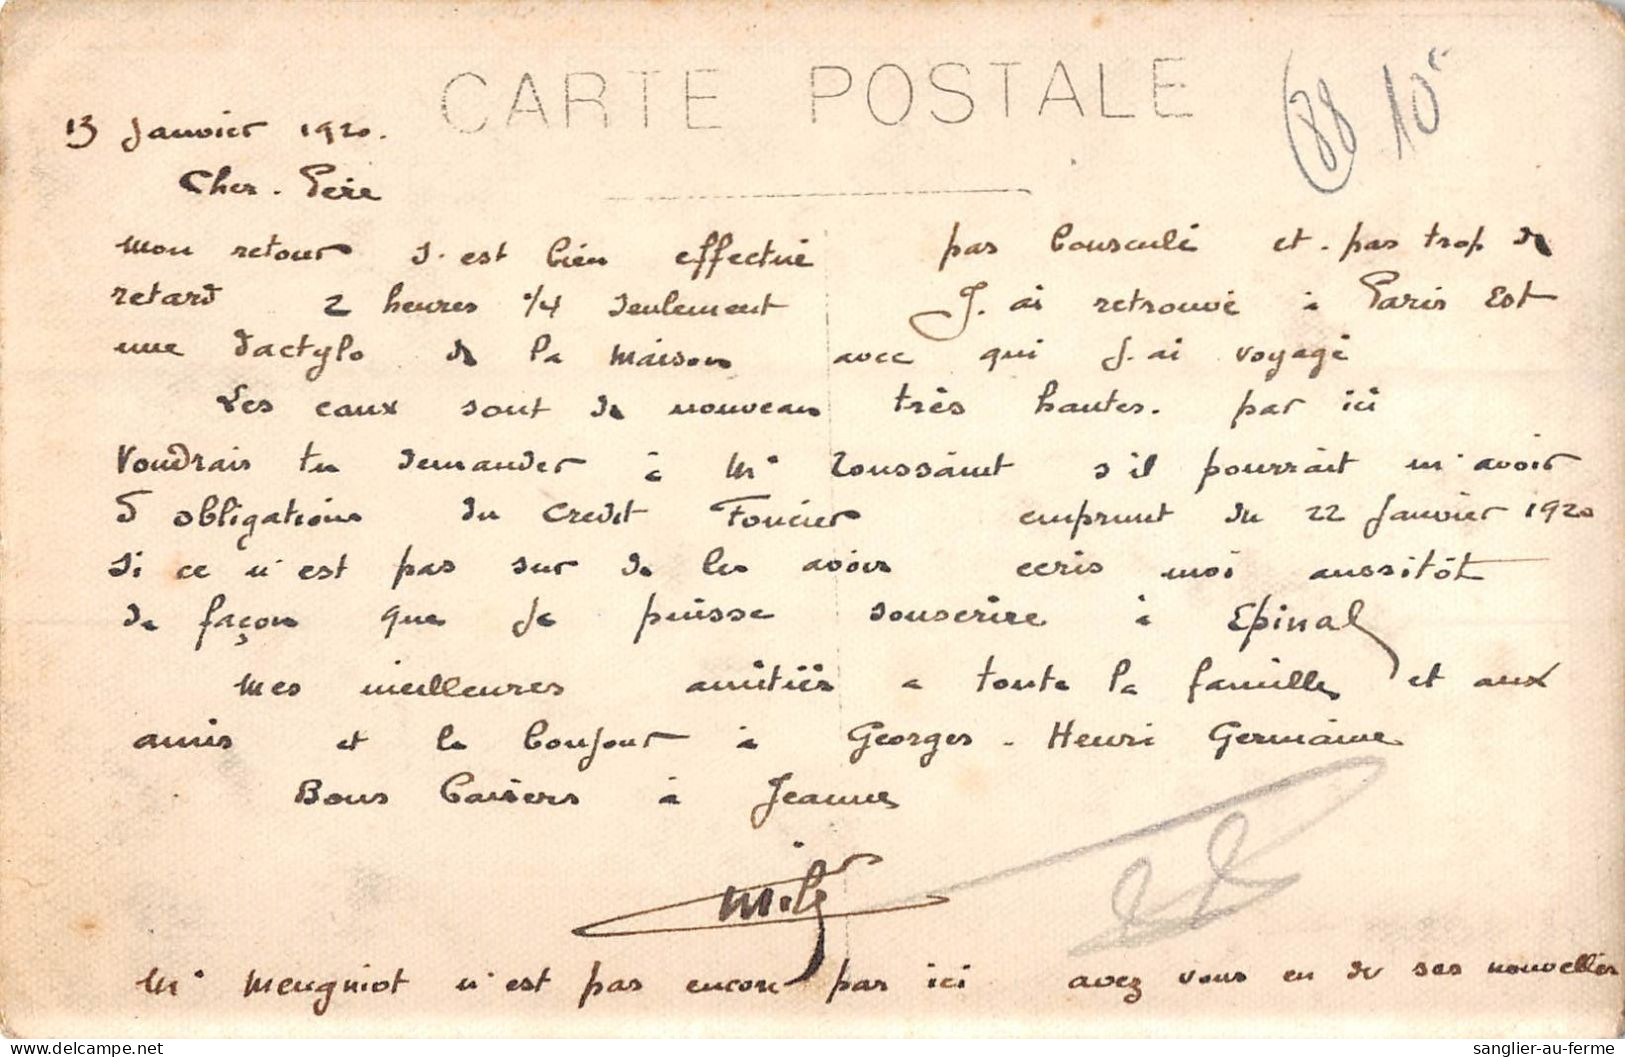 CARTE POSTALE
88 10
13 Janvier 1920.
Cher. Père
mon retour s'est bien effectué pas bousculé et. pas trop de
retard 2 heures 1/4 seulement J.ai retrouvé à Paris Est
une dactylo de la maison avec qui J.ai voyagé
Les eaux sont de nouveau très hautes. par ici
Voudrais tu demander à Mr Toussaint s'il pourrait m'avoir
5 obligations du Credit Foncier emprunt du 22 Janvier 1920
si ce n'est pas sur de les avoir ecris moi aussitôt
de façon que je puisse souscrire à Epinal
Mes meilleures amitiés a toute la famille et aux
amis et le bonjour à Georges - Henri Germaine
Bons baisers à Jeanne
Mr Meugniot n'est pas encore par ici avez vous eu de ses nouvelles
www.delcampe.net
sanglier-au-ferme